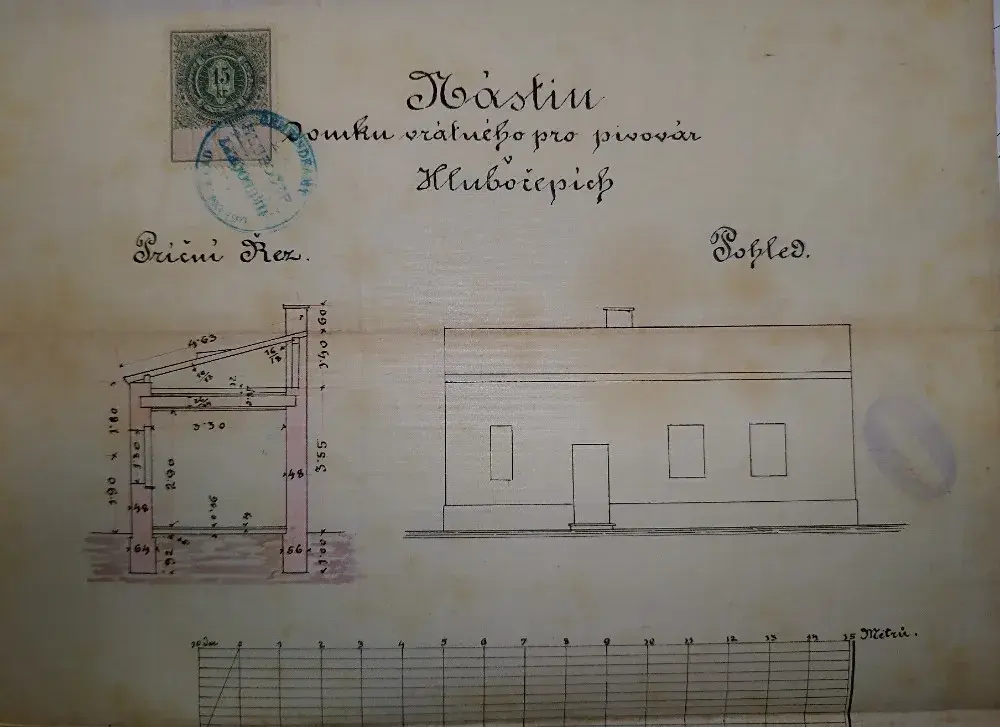 15
Nástin
Domku vrátného pro pivovár
Hlubočepích
Příční Řez.
Pohled.
4·63
60
1·40
16/18
1·80
3·30
1·90
1·30
2·90
48
48
3·55
64
92
56
1·00
0 1 2 3 4 5 6 7 8 9 10 11 12 13 14 15 Metrů.